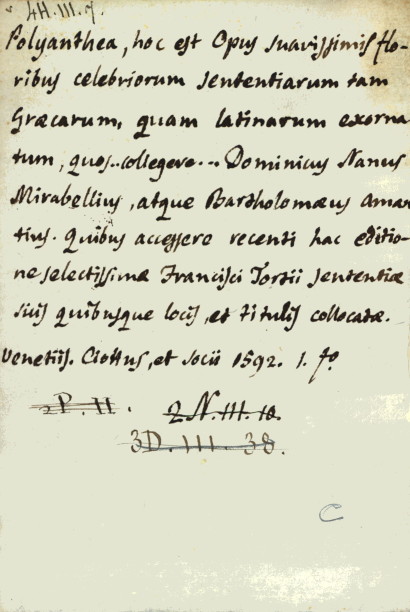 4H.III.7.
Polyanthea, hoc est Opus suavissimis flo-
ribus celebriorum sententiarum tam
Græcarum, quam latinarum exorna-
tum, quos..collegere... Dominicus Nanus
Mirabellius, atque Bartholomæus Aman
tius. Quibus accessere recenti hac editio-
ne selectissimæ Francisci Tortii sententiæ
suis quibusque locis, et titulis collocatæ.
Venetiis. Ciottus, et socii 1592. 1. fo.
2P.II. 2N.III.10.
3D.III.38.
C